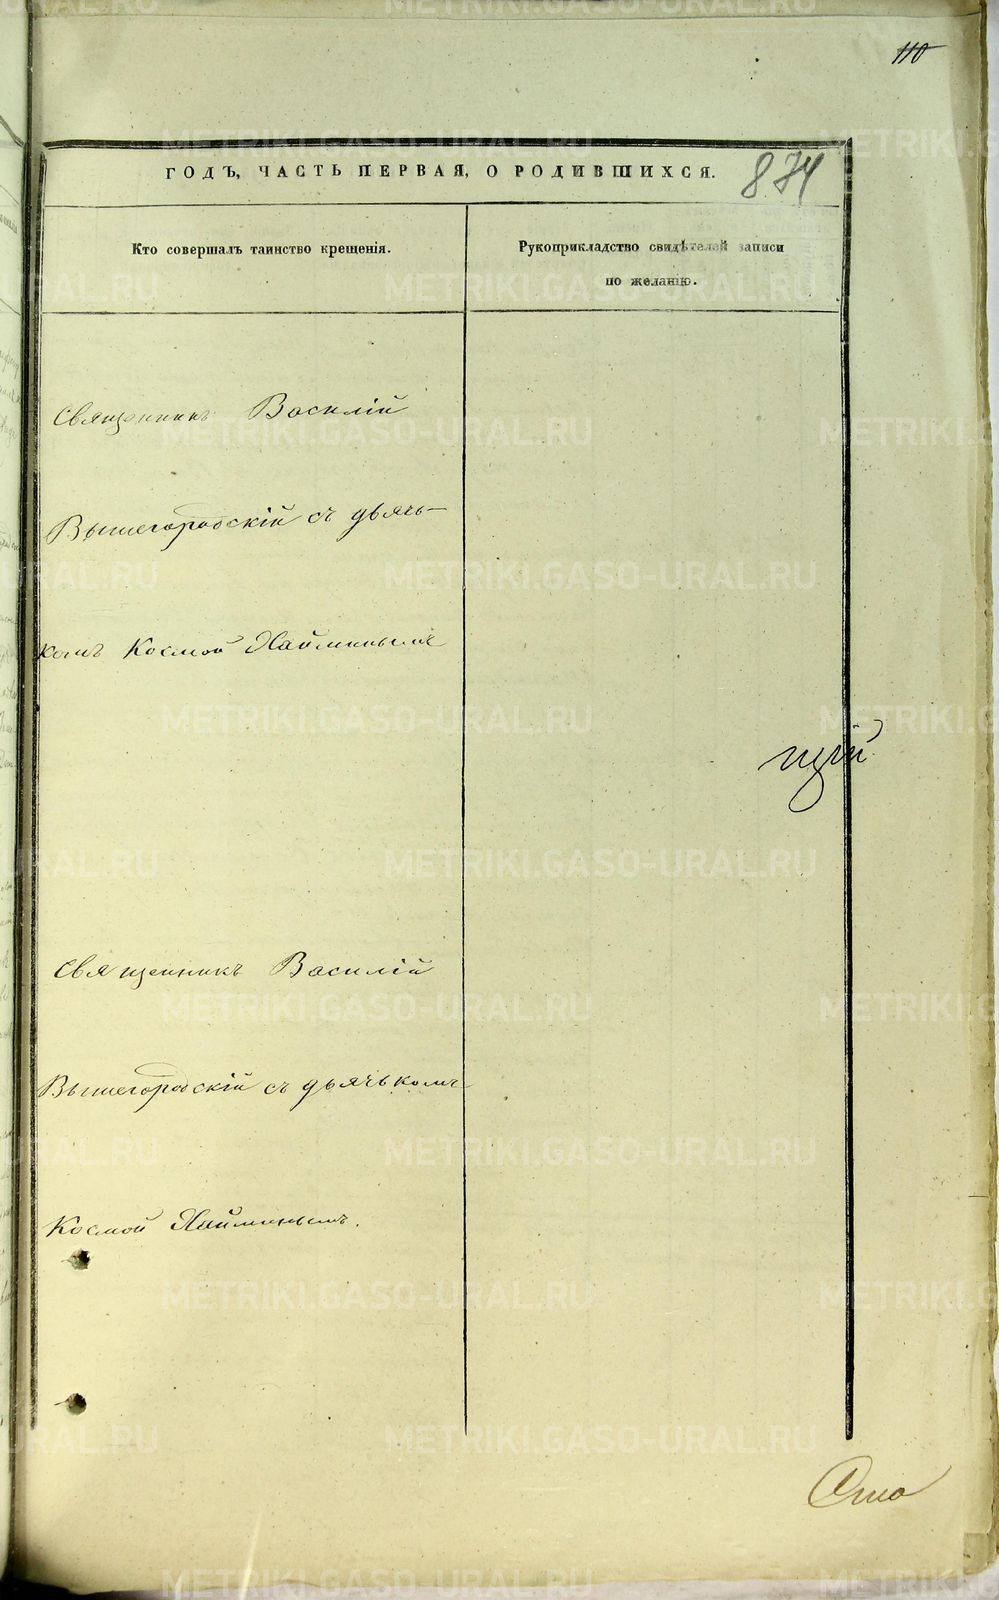 110
ГОДЪ, ЧАСТЬ ПЕРВАЯ, О РОДИВШИХСЯ.
874
Кто совершалъ таинство крещенія.
Рукоприкладство свидѣтелей записи
по желанію.
Священникъ Василій
Вышегородскій съ дьячь-
комъ Космой Найминымъ
Священникъ Василій
Вышегородскій съ дьячькомъ
Космой Найминымъ.
Сто
METRIKI.GASO-URAL.RU